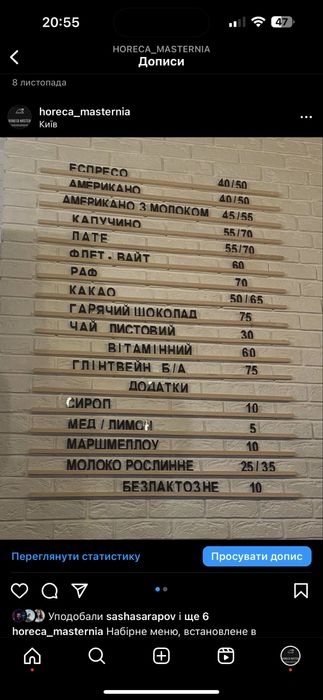 20:55
47
HORECA_MASTERNIA
Дописи
8 листопада
horeca_masternia
Київ
ЕСПРЕСО 40/50
АМЕРИКАНО 40/50
АМЕРИКАНО З МОЛОКОМ 45/55
КАПУЧИНО 55/70
ЛАТЕ 55/70
ФЛЕТ-ВАЙТ 60
РАФ 70
КАКАО 50/65
ГАРЯЧИЙ ШОКОЛАД 75
ЧАЙ ЛИСТОВИЙ 30
ВІТАМІННИЙ 60
ГЛІНТВЕЙН Б/А 75
ДОДАТКИ
СИРОП 10
МЕД / ЛИМОН 5
МАРШМЕЛЛОУ 10
МОЛОКО РОСЛИННЕ 25/35
БЕЗЛАКТОЗНЕ 10
Переглянути статистику
Просувати допис
Уподобали sashasarapov і ще 6
horeca_masternia Набірне меню, встановлене в